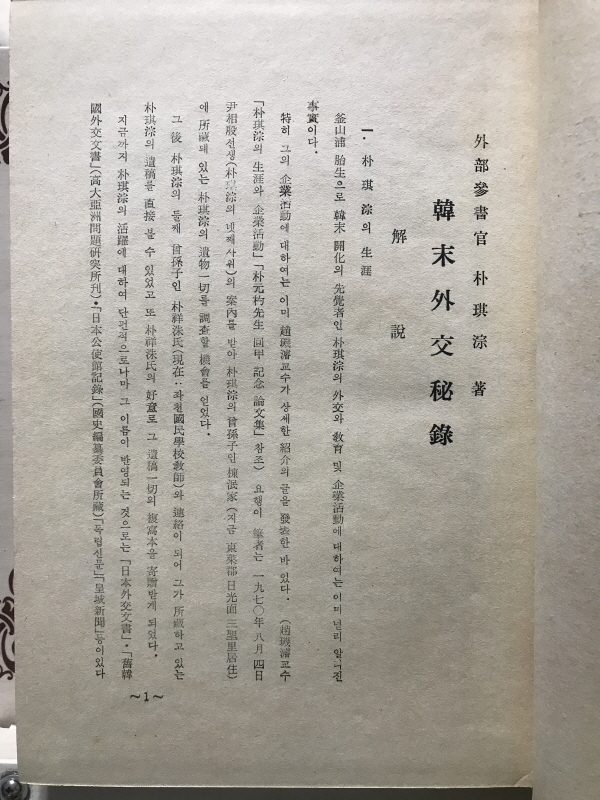 外部參書官 朴琪淙 著
韓末外交秘錄
解說
一. 朴琪淙의 生涯
釜山浦 胎生으로 韓末 開化의 先覺者인 朴琪淙의 外交와 敎育 및 企業活動에 대하여는 이미 널리 알려진
事實이다.
특히 그의 企業活動에 대하여는 이미 趙璣濬교수가 상세한 紹介의 글을 發表한 바 있다. (趙璣濬교수
「朴琪淙의 生涯와 企業活動」「朴元杓先生 回甲 記念 論文集」참조) 요행이 筆者는 一九七〇年 八月 四日
尹相殷선생(朴琪淙의 넷째사위)의 案內를 받아 朴琪淙의 曾孫子인 棟泯家(지금 東萊郡 日光面 三聖里居住)
에 所藏돼 있는 朴琪淙의 遺物一切를 調査할 機會를 얻었다.
그 後 朴琪淙의 둘째 曾孫子인 朴祥洙氏(現在‥좌천國民學校敎師)와 連絡이 되어 그가 所藏하고 있는
朴琪淙의 遺稿를 直接 볼 수 있었고 또 朴祥洙氏의 好意로 그 遺稿一切의 複寫本을 寄贈받게 되었다.
지금까지 朴琪淙의 活躍에 대하여 단편적으로나마 그 이름이 반영되는 것으로는 「日本外交文書」·「舊韓
國外交文書」(高大亞洲問題硏究所刊)·「日本公使館記錄」(國史編纂委員會所藏)「독립신문」「皇城新聞」등이있다
~1~